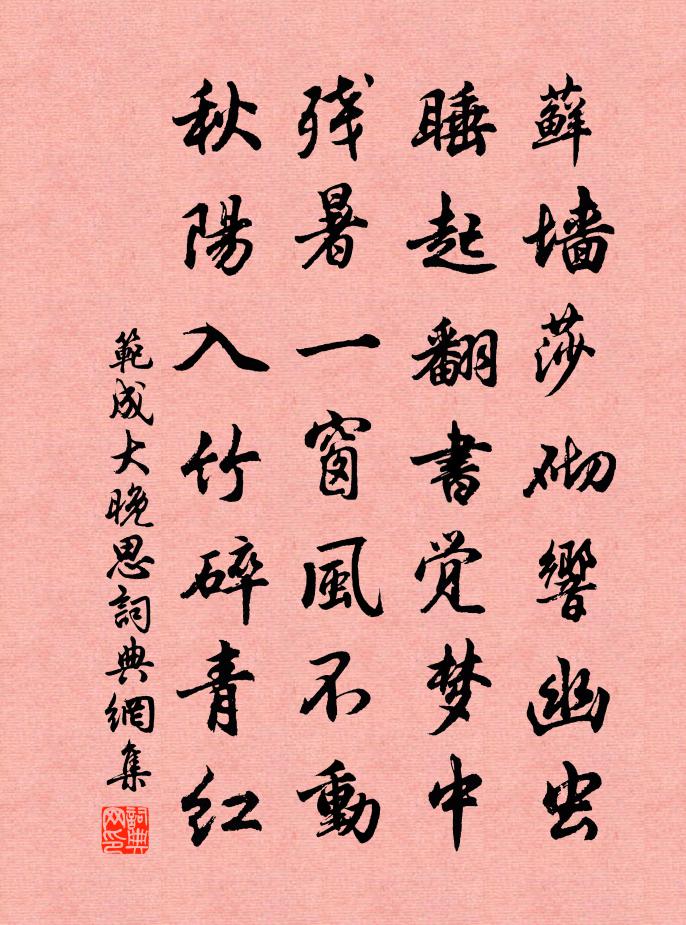 蘚墙莎砌響幽虫
睡起翻書觉梦中
残暑一窗風不動
秋陽入竹碎青红
範成大晚思詞典網集
詞典网印